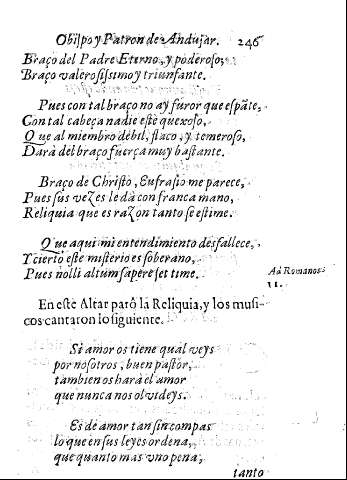 Obispo y Patron de Andujar. 246
Braço del Padre Eterno, y poderoso,
Braço valerosissimo y triunfante.
Pues con tal braço no ay furor que espãte,
Con tal cabeça nadie estè quexoso,
Que al miembro debil, flaco, y temeroso,
Darà del braço fuerça muy bastante.
Braço de Christo, Eufrasio me parece,
Pues sus vezes le dà con franca mano,
Reliquia que es razon tanto se estime.
Que aqui mi entendimiento desfallece,
Y cierto este misterio es soberano,
Pues nolli altum sapere set time.
Ad Romanos
11.
En este Altar parò la Reliquia, y los musi-
cos cantaron lo siguiente.
Si amor os tiene qual veys
por nosotros, buen pastor,
tambien os harà el amor
que nunca nos olvideys.
Es de amor tan sin compas
lo que en sus leyes ordena,
que quanto mas uno pena,
tanto